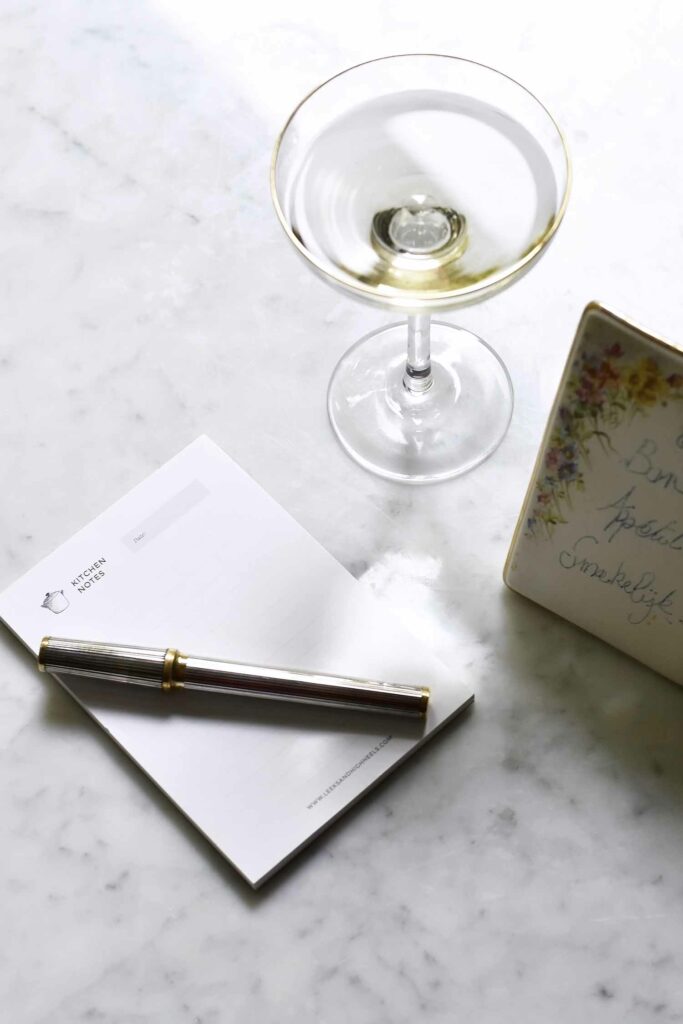 KITCHEN
NOTES
Date:
www.LEEKSANDHIGHHEELS.COM
Bon
Apétit
Smakelijk.